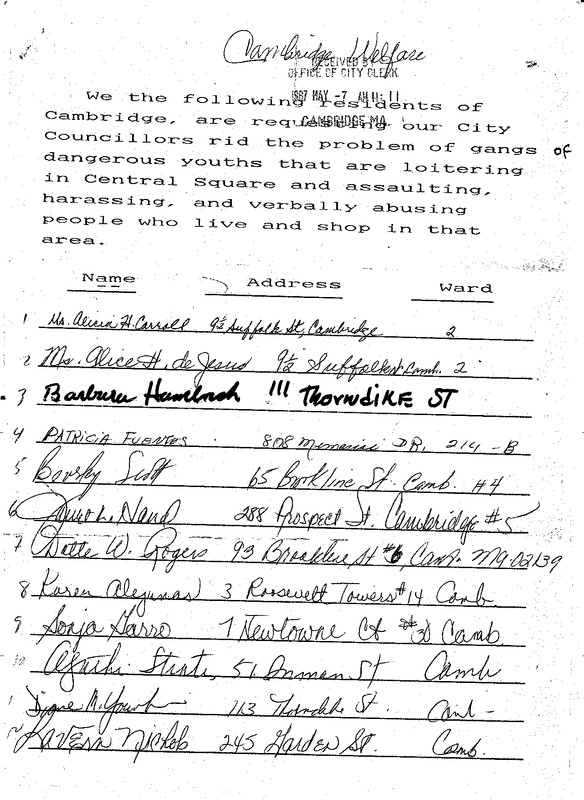 Cambridge Welfare
RECEIVED BY
OFFICE OF CITY CLERK
1987 MAY -7 AM 11: 11
CAMBRIDGE MA.
We the following residents of
Cambridge, are requesting our City
Councillors rid the problem of gangs of
dangerous youths that are loitering
in Central Square and assaulting,
harassing, and verbally abusing
people who live and shop in that
area.
Name Address Ward
1 Ms. Alicia H. Carroll 9½ Suffolk St, Cambridge 2
2 Ms. Alice H. de Jesus 9½ Suffolk St. Camb. 2
3 Barbara 111 THORNDIKE ST
4 PATRICIA FUENTES 808 Memorial DR. 214-B
5 Scott 65 Brookline St. Camb. #4
6 288 Prospect St. Cambridge #5
7 W. Rogers 93 Brookline St #6 Camb. MA 02139
8 Karen 3 Roosevelt Towers #14 Camb
9 Sonja 7 Newtowne Ct Camb
10 51 Inman St Camb
113 Thorndike St. Camb
LaVern 245 Garden St. Camb.